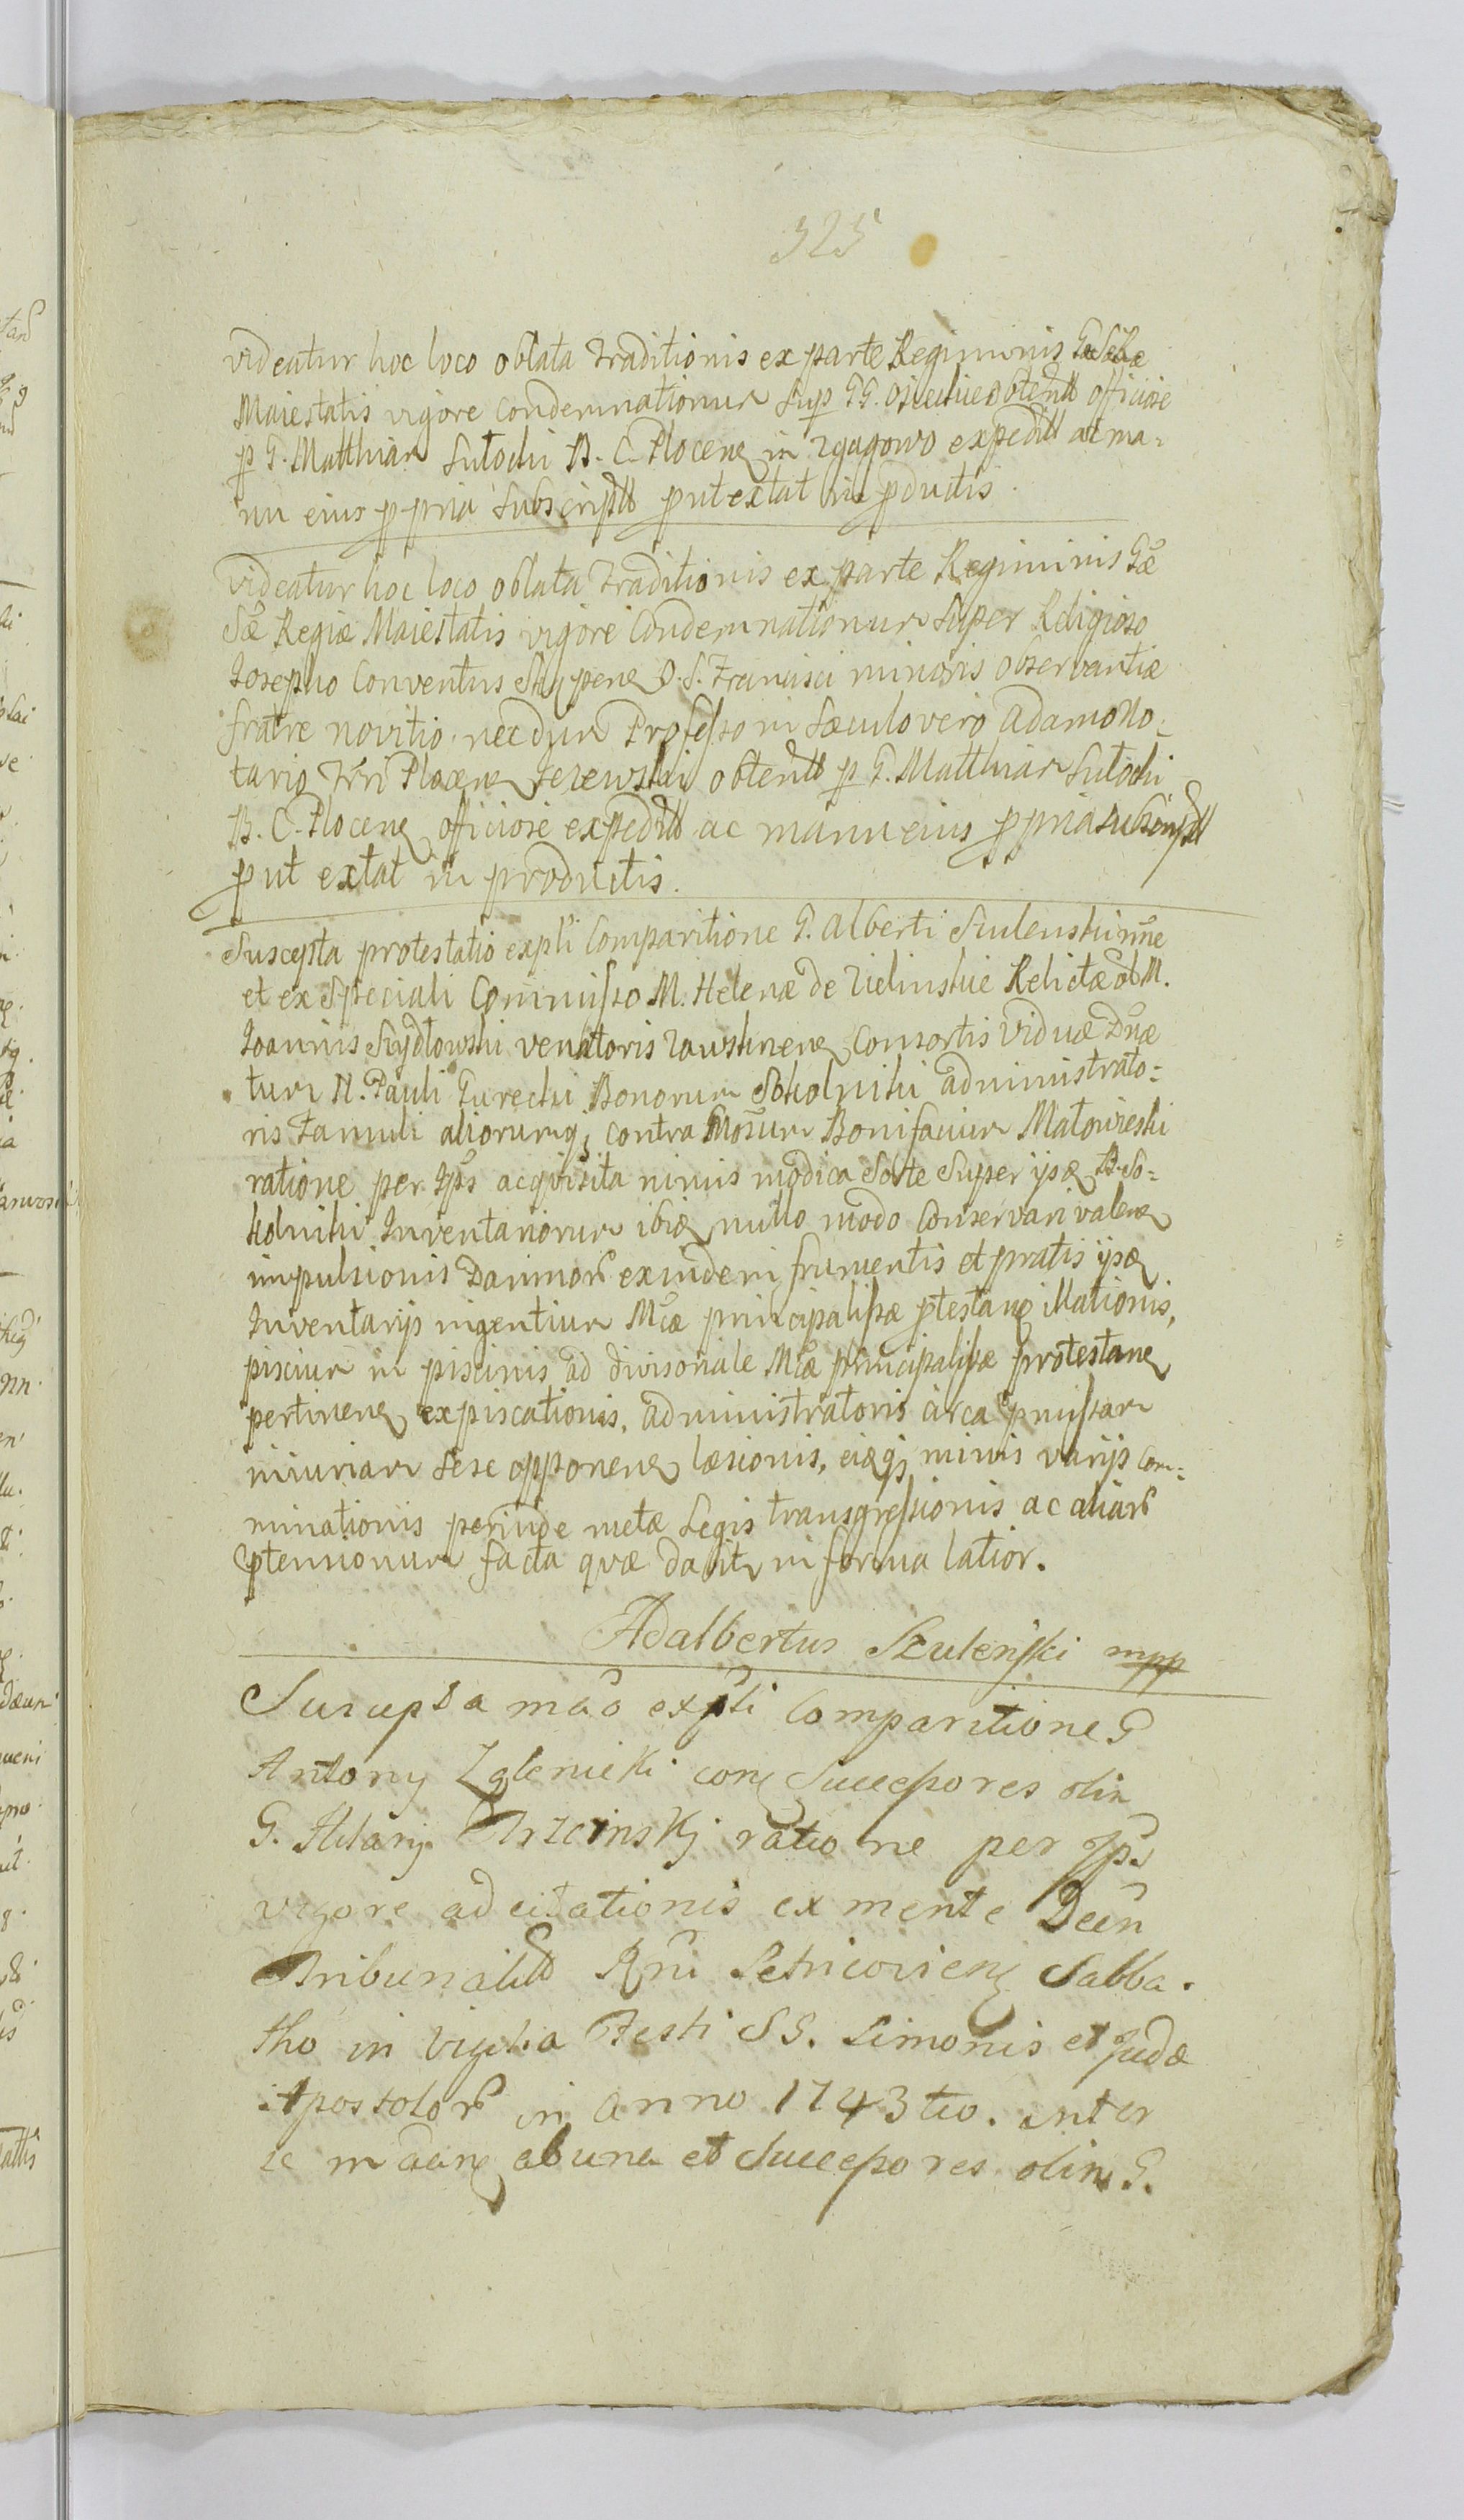 325
videatur hoc loco oblata traditionis ex parte Regiminis
Maiestatis vigore condemnationum sup GG. Osieckie obtent officiose
p G. Matthiam Sutocki B. C. Plocen in Zgagowo expedit ac ma=
nu eius ppria subscript put extat in pductis.
videatur hoc loco oblata traditionis ex parte Regiminis Gæ
Sæ Regiæ Maiestatis vigore Condemnationum super Religioso
Josepho Conventus Skępen O. S. Francisci minoris observantiæ
fratre novitio necdum Professo in sæculo vero Adamo No=
tario Plocen Jezewski obtent p G. Matthiam Sutocki
B. C. Plocen officiose expedit ac manu eius ppria subscript
put extat in productis.
Suscepta protestatio expti Comparitione G. Alberti Sculenski nne
et ex speciali Commisso M. Helenæ de Zielinskie Relictæ ob M.
Joannis Szydłowski venatoris Zawskrnen Consortis Viduæ Dnæ
tum N. Pauli Gurecki Bonorum Sokolniki administrato=
ris famuli aliorumq; contra Mosum Bonifacium Matowieski
ratione per Ips acqvisita nimis modica Sorte super ipse B. So=
kolniki Inventariorum ibiq nullo modo conservari valen
impulsionis Damnor exindem frumentis et pratis ipse
Inventarijs ingentium Mcæ principalissæ ptestan illationis,
piscium in piscinis ad divisonale Mcæ principalissæ protestan
pertinen expiscationis, administratoris circa pmissam
iniuriam sese opponen læsionis, eiq; minis varijs com=
minationis perinde metæ Legis transgressionis ac aliar
ptensionum facta qvæ dabit in forma latior.
Adalbertus Szulenski mpp
Suscepta mao expti Comparitione G
Antony Zglenicki con Successores olim
G. Hilarij Trzcinskj ratione per Ips
vigore adcitationis ex mente Decn
Tribunalit Rni Petricovien Sabba.
tho in Vigilia Festi SS. Simonis et Judæ
Apostolor in Anno 1743tio. inter
se madan ab una et Successores olim G.